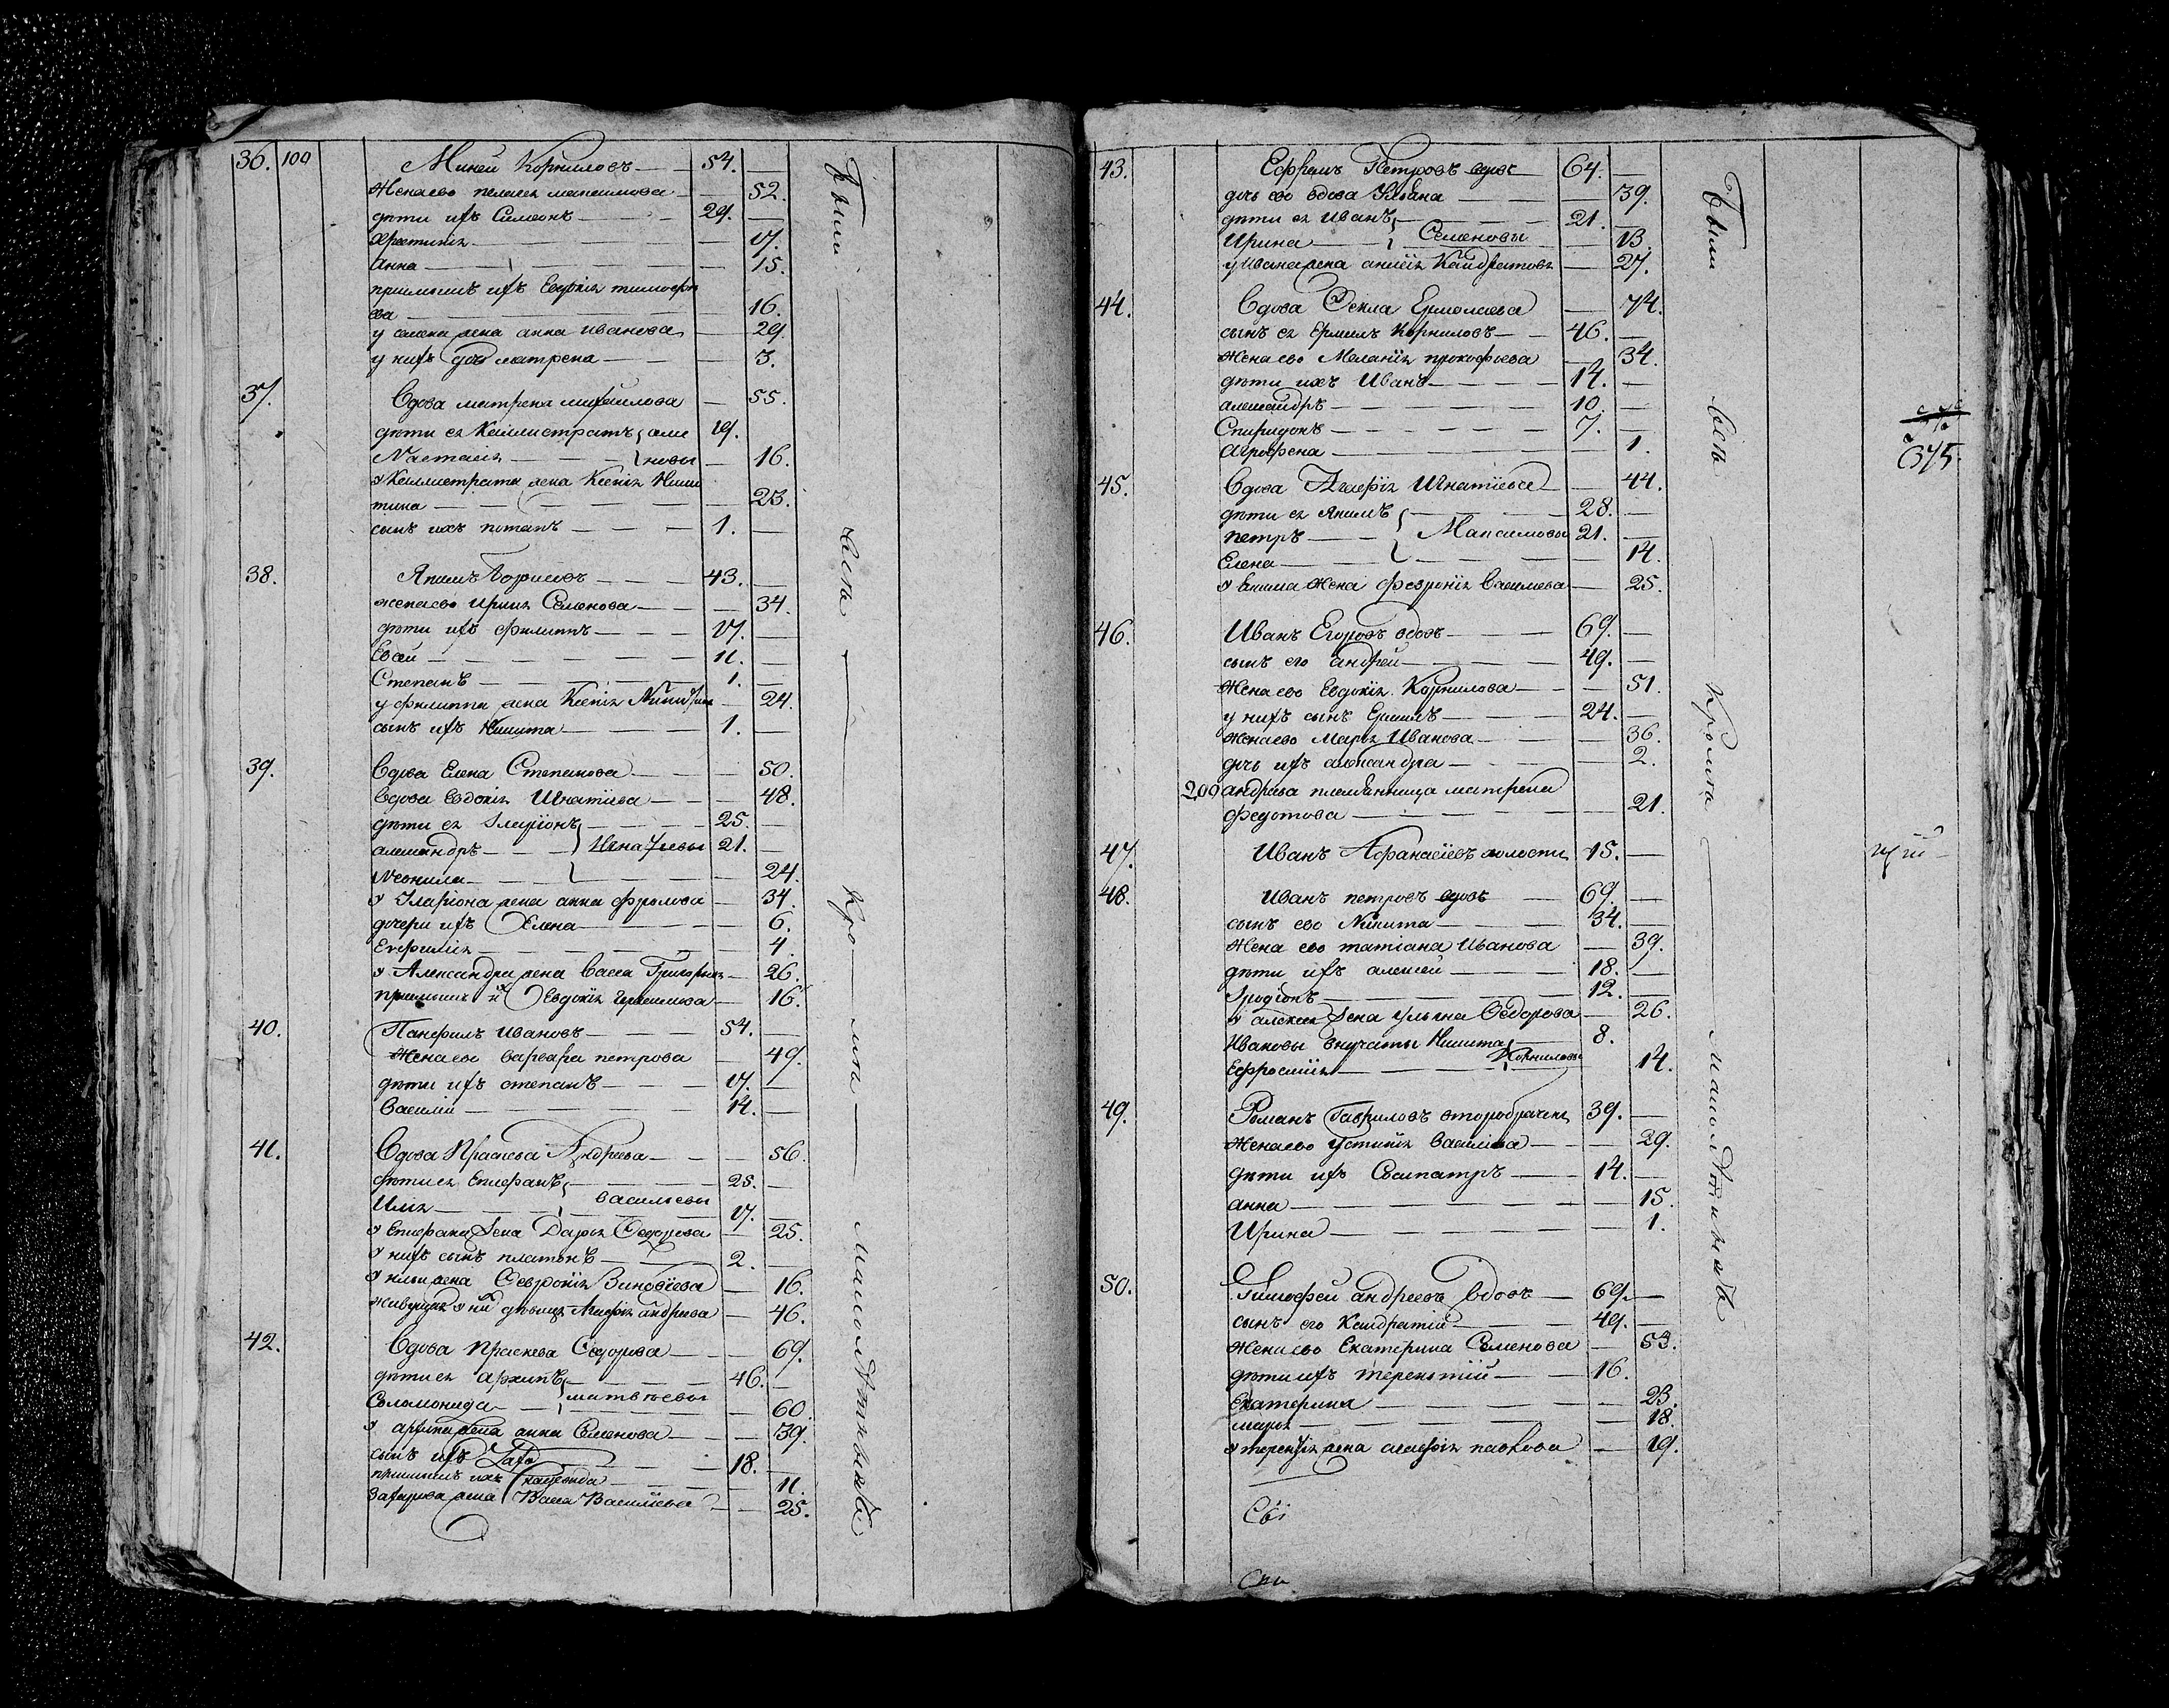 36. 100 Миней Корниловъ — 54. —
Жена ево пелагея максимова — 52.
дѣти ихъ Симеонъ — 29. —
Христинія — 17.
Анна — 15.
приимышъ ихъ Евдокія тимофѣ
ева — 16.
у семена жена анна иванова — 29.
у нихъ дочь матрена — 3.
37. Вдова матрена михайлова — 55.
дѣти ея Каллистратъ 19.
Настасія — 16.
у Каллистрата жена Ксенія Ники
тина — 23.
сынъ ихъ потапъ — 1. —
38. Якимъ Борисовъ — 43. —
жена ево ирина Семенова — 34.
дѣти ихъ филиппъ — 17. —
Евсей — 11. —
Степанъ — 1. —
у филиппа жена Ксенія — 24.
сынъ ихъ Никита — 1. —
39. Вдова Елена Степанова — 50.
Вдова Евдокія Игнатіева — 48.
дѣти ея Іларіонъ — 25. —
александръ — Игнатьевы 21. —
Неонила — 24.
у Іларіона жена анна фролова — 34.
дочери ихъ Елена — 6.
Евфимія — 4.
у Александра жена Васса Григорьева — 26.
приимышъ их Евдокія Герасимова — 16.
40. Панфилъ Ивановъ — 54. —
Жена ево варвара петрова — 49.
дѣти ихъ степанъ — 17. —
Василій — 14. —
41. Вдова Праскева Андреева — 56.
дѣти ея Епифанъ — 25. —
Илія — васильевы 17. —
у Епифана жена Дарья Федорова — 25.
у нихъ сынъ платонъ — 2. —
у ильи жена Феврония Зиновіева — 16.
Живущая у них дѣвица Агафія андреева — 46.
42. Вдова праскева Федорова — 69.
дѣти ея архипъ — 46. —
Соломонида — матвѣевы — 60.
у архипа жена анна Семенова — 39.
сынъ ихъ Захаръ — 18. —
приимышъ ихъ — 11.
Захарова жена Васса Васильева — 25.
Были
весь
Кро
мѣ
малолѣтныхъ
43. Ефремъ Петровъ вдовъ 64. —
дочь ево вдова Ульяна — 39.
дѣти ея иванъ — 21. —
Ирина — Семеновы — 13.
у ивана жена — 27.
44. Вдова Фекла Ермолаева — 74.
сынъ ея Ермилъ Корниловъ — 46. —
Жена ево Меланія прокофьева — 34.
дѣти ихъ Иванъ — 14. —
александръ — 10. —
Спиридонъ — 7. —
Агрофена — 1.
375.
45. Вдова Агафія Игнатіева — 44.
дѣти ея Якимъ — 28. —
петръ — Максимовы 21. —
Елена — 14.
у Якима жена Феврония Василиева — 25.
46. Иванъ Егоровъ вдовъ — 69. —
сынъ его андрей — 49. —
Жена ево Евдокія Корнилова — 51.
у нихъ сынъ Ермилъ — 24. —
Жена ево Марья Иванова — 36.
дочь ихъ александра — 2.
200 андреева племянница матрена
федотова — 21.
47. Иванъ Афанасіевъ холостъ 15. —
48. Иванъ петровъ вдовъ — 69. —
сынъ ево Никита — 34. —
Жена ево татіана Иванова — 39.
дѣти ихъ алексей — 18. —
Іродіонъ — 12. —
у алексея жена ульяна Федорова — 26.
Ивановы внучаты Никита — 8.
Ефросинія — Корниловы 14.
49. Романъ Гавриловъ второбрачен 39. —
Жена ево устинія Василиева — 29.
дѣти ихъ Сосипатръ — 14. —
анна — 15.
Ирина — 1.
50. Тимофей андреевъ вдовъ — 69. —
сынъ его Кандратій — 49. —
Жена ево Екатерина Семенова — 53.
дѣти ихъ терентій — 16.
Екатерина — 23.
марья — 18.
у терентія жена агафія павлова — 19.
Были
весь
Кромѣ
малолѣтныхъ